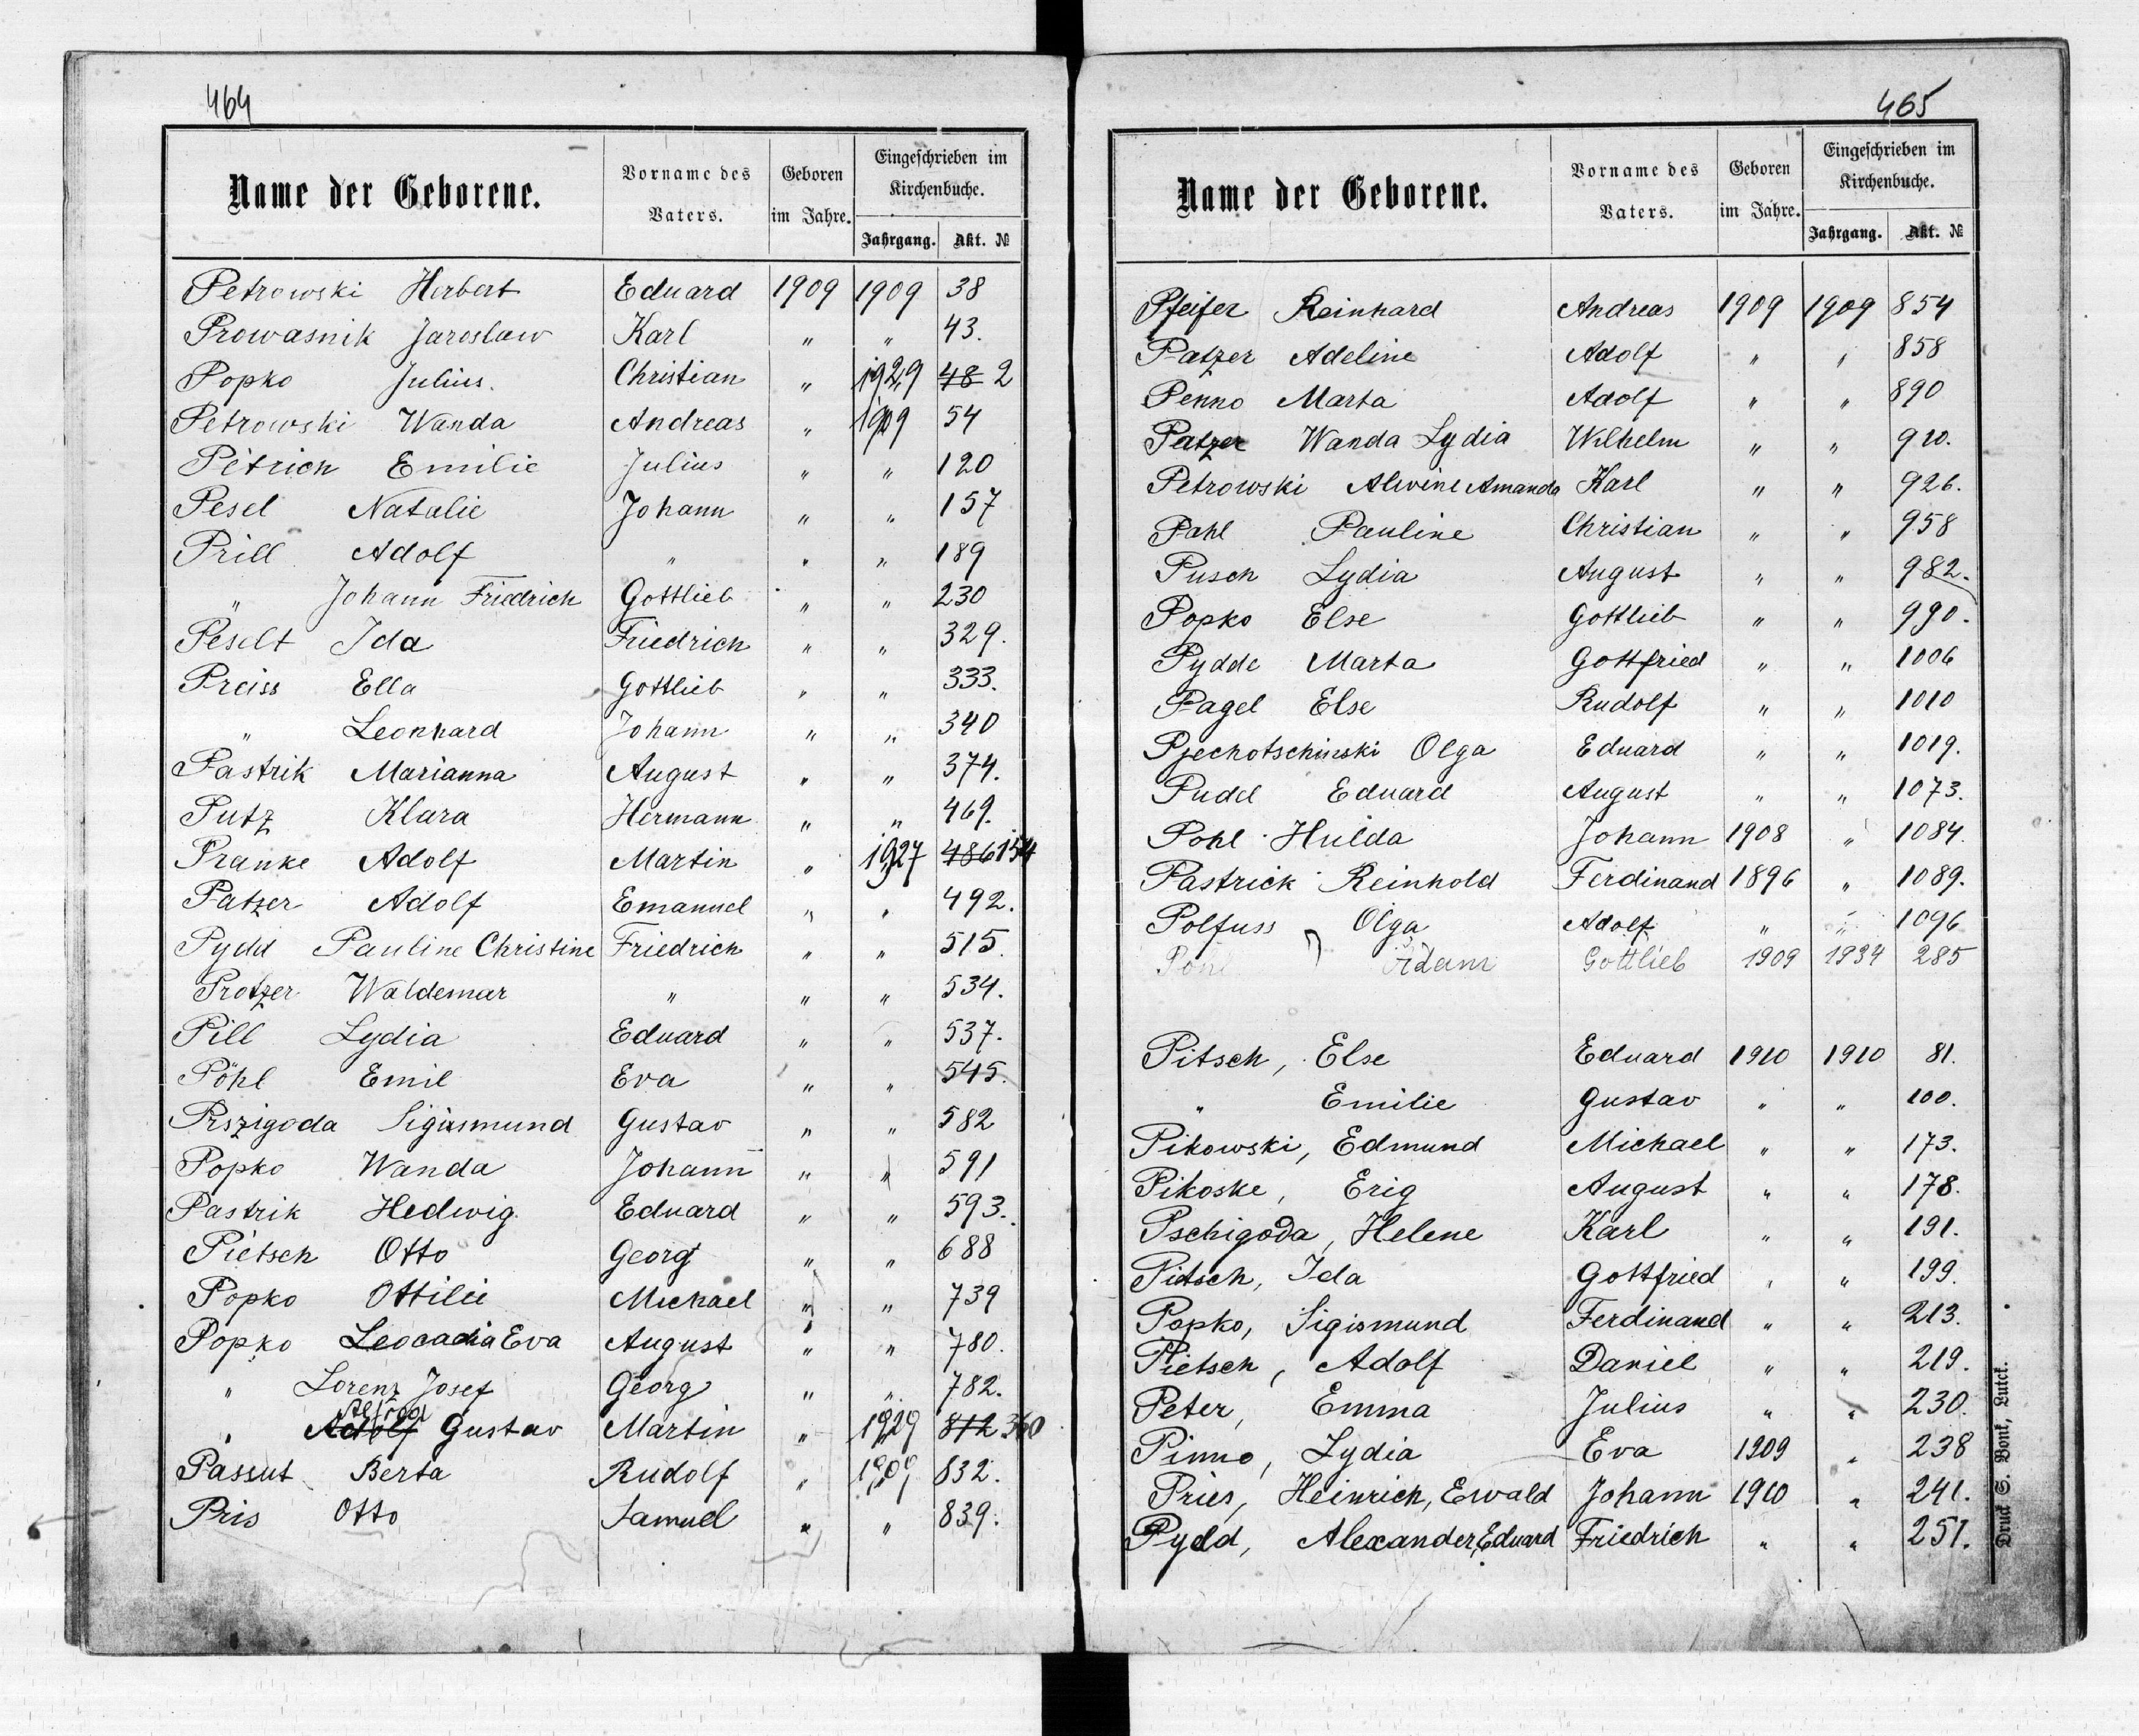 464
Name der Geborene. Vorname des Vaters. Geboren im Jahre. Eingeschrieben im Kirchenbuche. Jahrgang. Akt. №
Petrowski Herbert Eduard 1909 1909 38
Prowasnik Jaroslaw Karl " " 43.
Popko Julius. Christian " 1929 48 2
Petrowski Wanda Andreas " 1909 54
Petrich Emilie Julius " " 120
Pesel Natalie Johann " " 157
Prill Adolf " " " 189
" Johann Friedrich Gottlieb " " 230
Peselt Ida Friedrich " " 329.
Preiss Ella Gottlieb " " 333.
" Leonhard Johann " " 340
Pastrik Marianna August " " 374.
Putz Klara Hermann " " 469.
Pranke Adolf Martin " 1927 486 154
Patzer Adolf Emanuel " " 492.
Pydd Pauline Christine Friedrich " " 515.
Protzer Waldemar " " " 534.
Pill Lydia Eduard " " 537.
Pöhl Emil Eva " " 545.
Prszigoda Sigismund Gustav " " 582
Popko Wanda Johann " " 591
Pastrik Hedwig Eduard " " 593.
Pietsch Otto Georg " " 688
Popko Ottilie Michael " " 739
Popko Leocadia Eva August " " 780.
" Lorenz Josef Georg " " 782.
" Adolf Alfred Gustav Martin " 1929 812 360
Passut Berta Rudolf " 1909 832.
Pris Otto Samuel " " 839.
465
Name der Geborene. Vorname des Vaters. Geboren im Jahre. Eingeschrieben im Kirchenbuche. Jahrgang. Akt. №
Pfeifer Reinhard Andreas 1909 1909 854
Patzer Adeline Adolf " " 858
Penno Marta Adolf " " 890
Patzer Wanda Lydia Wilhelm " " 910.
Petrowski Alwine Amanda Karl " " 926.
Pahl Pauline Christian " " 958
Pusch Lydia August " " 982.
Popko Else Gottlieb " " 990.
Pydde Marta Gottfried " " 1006
Pagel Else Rudolf " " 1010
Pjechotschinski Olga Eduard " " 1019.
Pudel Eduard August " " 1073.
Pohl Hulda Johann 1908 " 1084.
Pastrick Reinhold Ferdinand 1896 " 1089.
Polfuss Olga Adolf " " 1096
Pohl Adam Gottlieb 1909 1934 285
Pitsch, Else Eduard 1910 1910 81.
" Emilie Gustav " " 100.
Pikowski, Edmund Michael " " 173.
Pikoske, Erig August " " 178.
Pschigoda, Helene Karl " " 191.
Pitsch, Ida Gottfried " " 199.
Popko, Sigismund Ferdinand " " 213.
Pietsch, Adolf Daniel " " 219.
Peter, Emma Julius " " 230.
Pinno, Lydia Eva 1909 " 238
Pries, Heinrich, Ewald Johann 1910 " 241.
Pydd, Alexander, Eduard Friedrich " " 251.
Druck S. Bonk, Lutck.